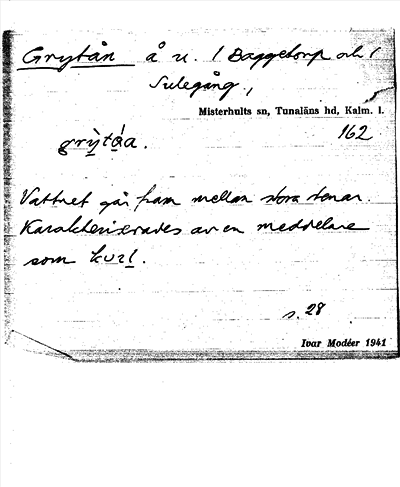 Grytån å u. 1 Baggetorp och 1
Sulegång,
Misterhults sn, Tunaläns hd, Kalm. l.
162
grỳtá̱a.
Vattnet går fram mellan stora stenar.
Karakteriserades av en meddelare
som kurl.
s. 28
Ivar Modéer 1941